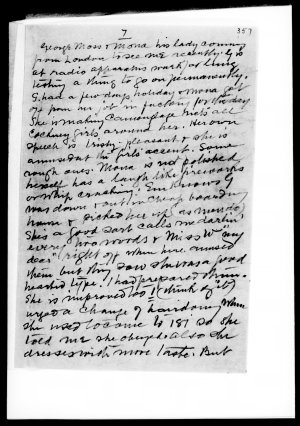 7
357
George Moss & Mona his lady coming
from London to see me recently. G is
at radio apparatus work, at time
testing a thing to go on permanently.
G. had a few days holiday & Mona got
off from her job in factory for the day
She is making camouflage nets all
Cockney girls around her. Her own
speech is Irishy pleasant & she is
amused at the girls accent. Some
rough ones. Mona is not polished
herself has a laugh like fireworks
or whip cracking! Em knows G
was down & out in cheap boarding
house & picked her up as
She's a good sort calls me darlin'
every two words & Miss W any
dear! (right off when here amused
them but they saw she was a good
hearted type. I had prepared them.
She is improved too I think (of it)
urged a change of hairdoing when
she used to come to 181 so she
told me she obeyed also she
dresses with more taste. But